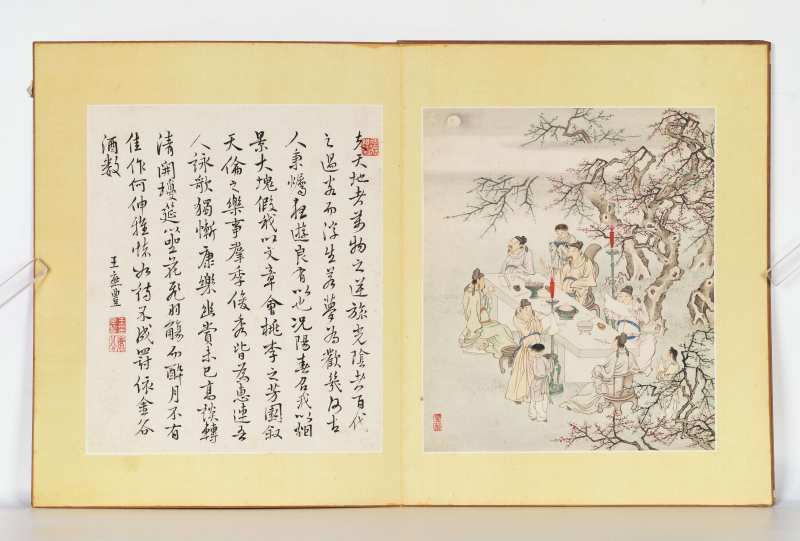 夫天地者萬物之逆旅光陰者百代
之過客而浮生若夢為歡幾何古
人秉燭夜遊良有以也況陽春召我以烟
景大塊假我以文章會桃李之芳園叙
天倫之樂事羣季俊秀皆為惠連吾
人詠歌獨慚康樂幽賞未已高談轉
清開瓊筵以坐花飛羽觴而醉月不有
佳作何伸雅懷如詩不成罰依金谷
酒數
王豐